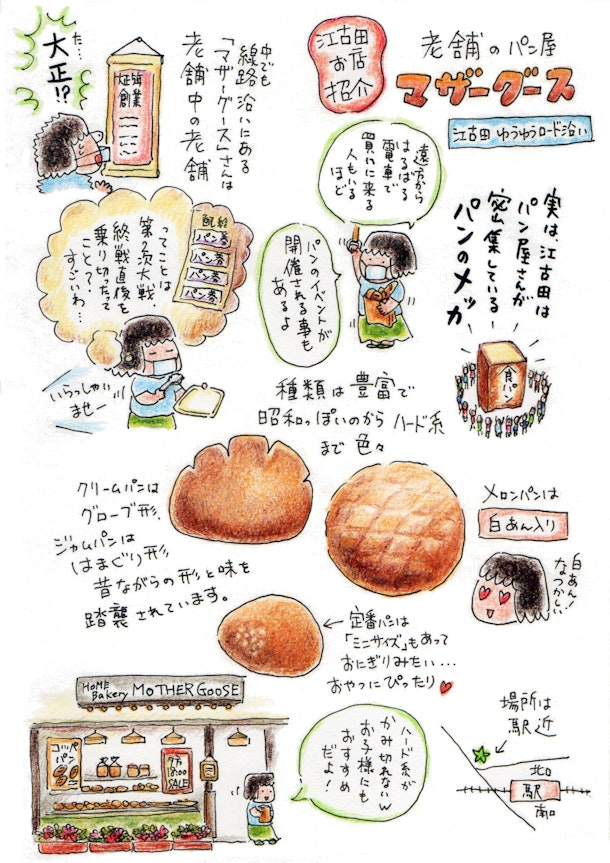 江古田
お店
紹介
老舗のパン屋
マザーグース
江古田 ゆうゆうロード沿い
実は、江古田は
パン屋さんが
密集している
パンのメッカ
食パン
遠方から
はるばる
電車で
買いに来る
人もいる
ほど
パンのイベントが
開催される事も
あるよ
中でも
線路沿いにある
「マザーグース」さんは
老舗中の老舗
創業
た…
大正!?
ってことは
第2次大戦、
終戦直後を
乗り切ったって
こと?、
すごいわ…
配給
パン券
パン券
パン券
パン券
いらっしゃい
ませー
種類は豊富で
昭和っぽいのからハード系
まで色々
クリームパンは
グローブ形、
ジャムパンは
はまぐり形
昔ながらの形と味を
踏襲されています。
メロンパンは
白あん入り
白あん!
なつかしい
←定番パンは
「ミニサイズ」もあって
おにぎりみたい…
おやつにぴったり♥
HOME
Bakery MOTHER GOOSE
コッペ
パン
夕方
18:00
SALE
ハード系が
かみ切れないw
お子様にも
おすすめ
だよ!
場所は
駅近
北口
駅
南口